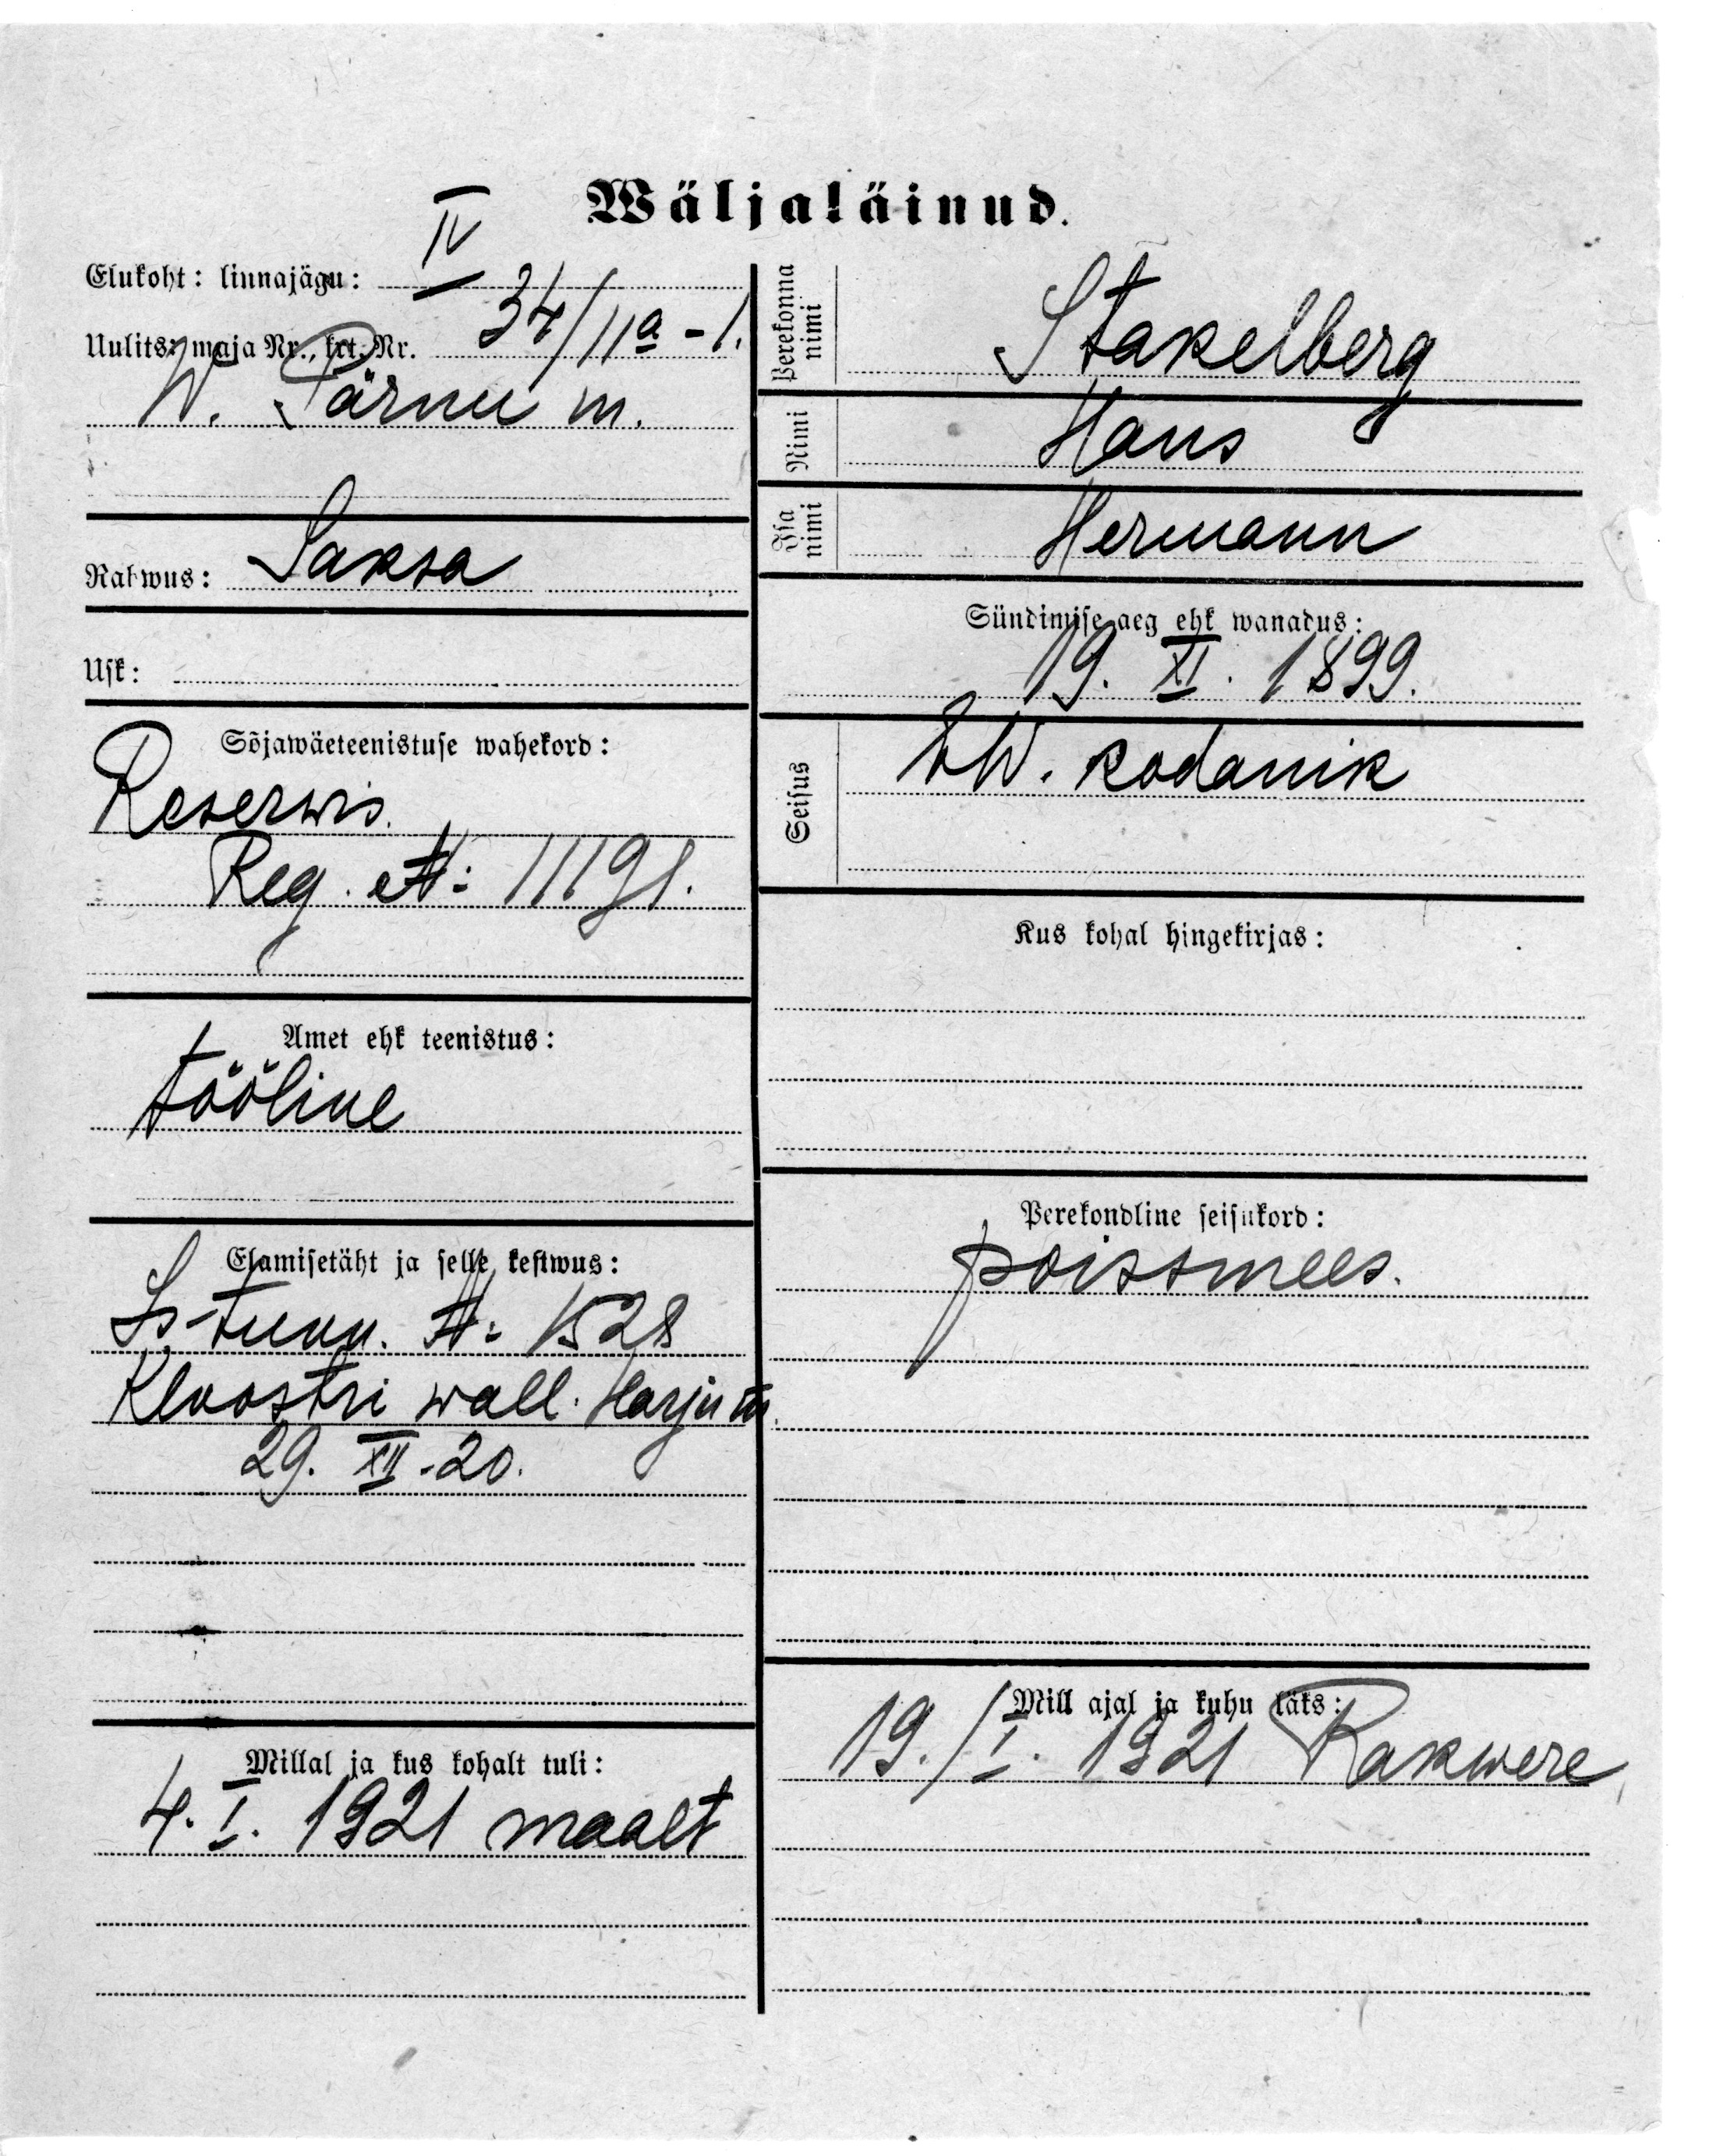 Wäljaläinud.
Elukoht: linnajägu: IV
Uulits: maja Nr., krt. Nr. 34/11a - 1.
W. Pärnu m.
Rahwus: Saksa
Usk:
Sõjawäeteenistuse wahekord:
Reserwis.
Reg. №: 11191.
Amet ehk teenistus:
tööline
Elamisetäht ja selle kestwus:
Is-tunn. №: 1528
Kloostri wall. Harju m.
29. XII. 20.
Millal ja kus kohalt tuli:
4. I. 1921 maalt
Perekonna nimi Stakelberg
Nimi Hans
Isa nimi Hermann
Sündimise aeg ehk wanadus:
19. XI. 1899.
Seisus EW. kodanik
Kus kohal hingekirjas:
Perekondline seisukord:
poissmees.
Mill ajal ja kuhu läks:
19./I. 1921 Rakwere,